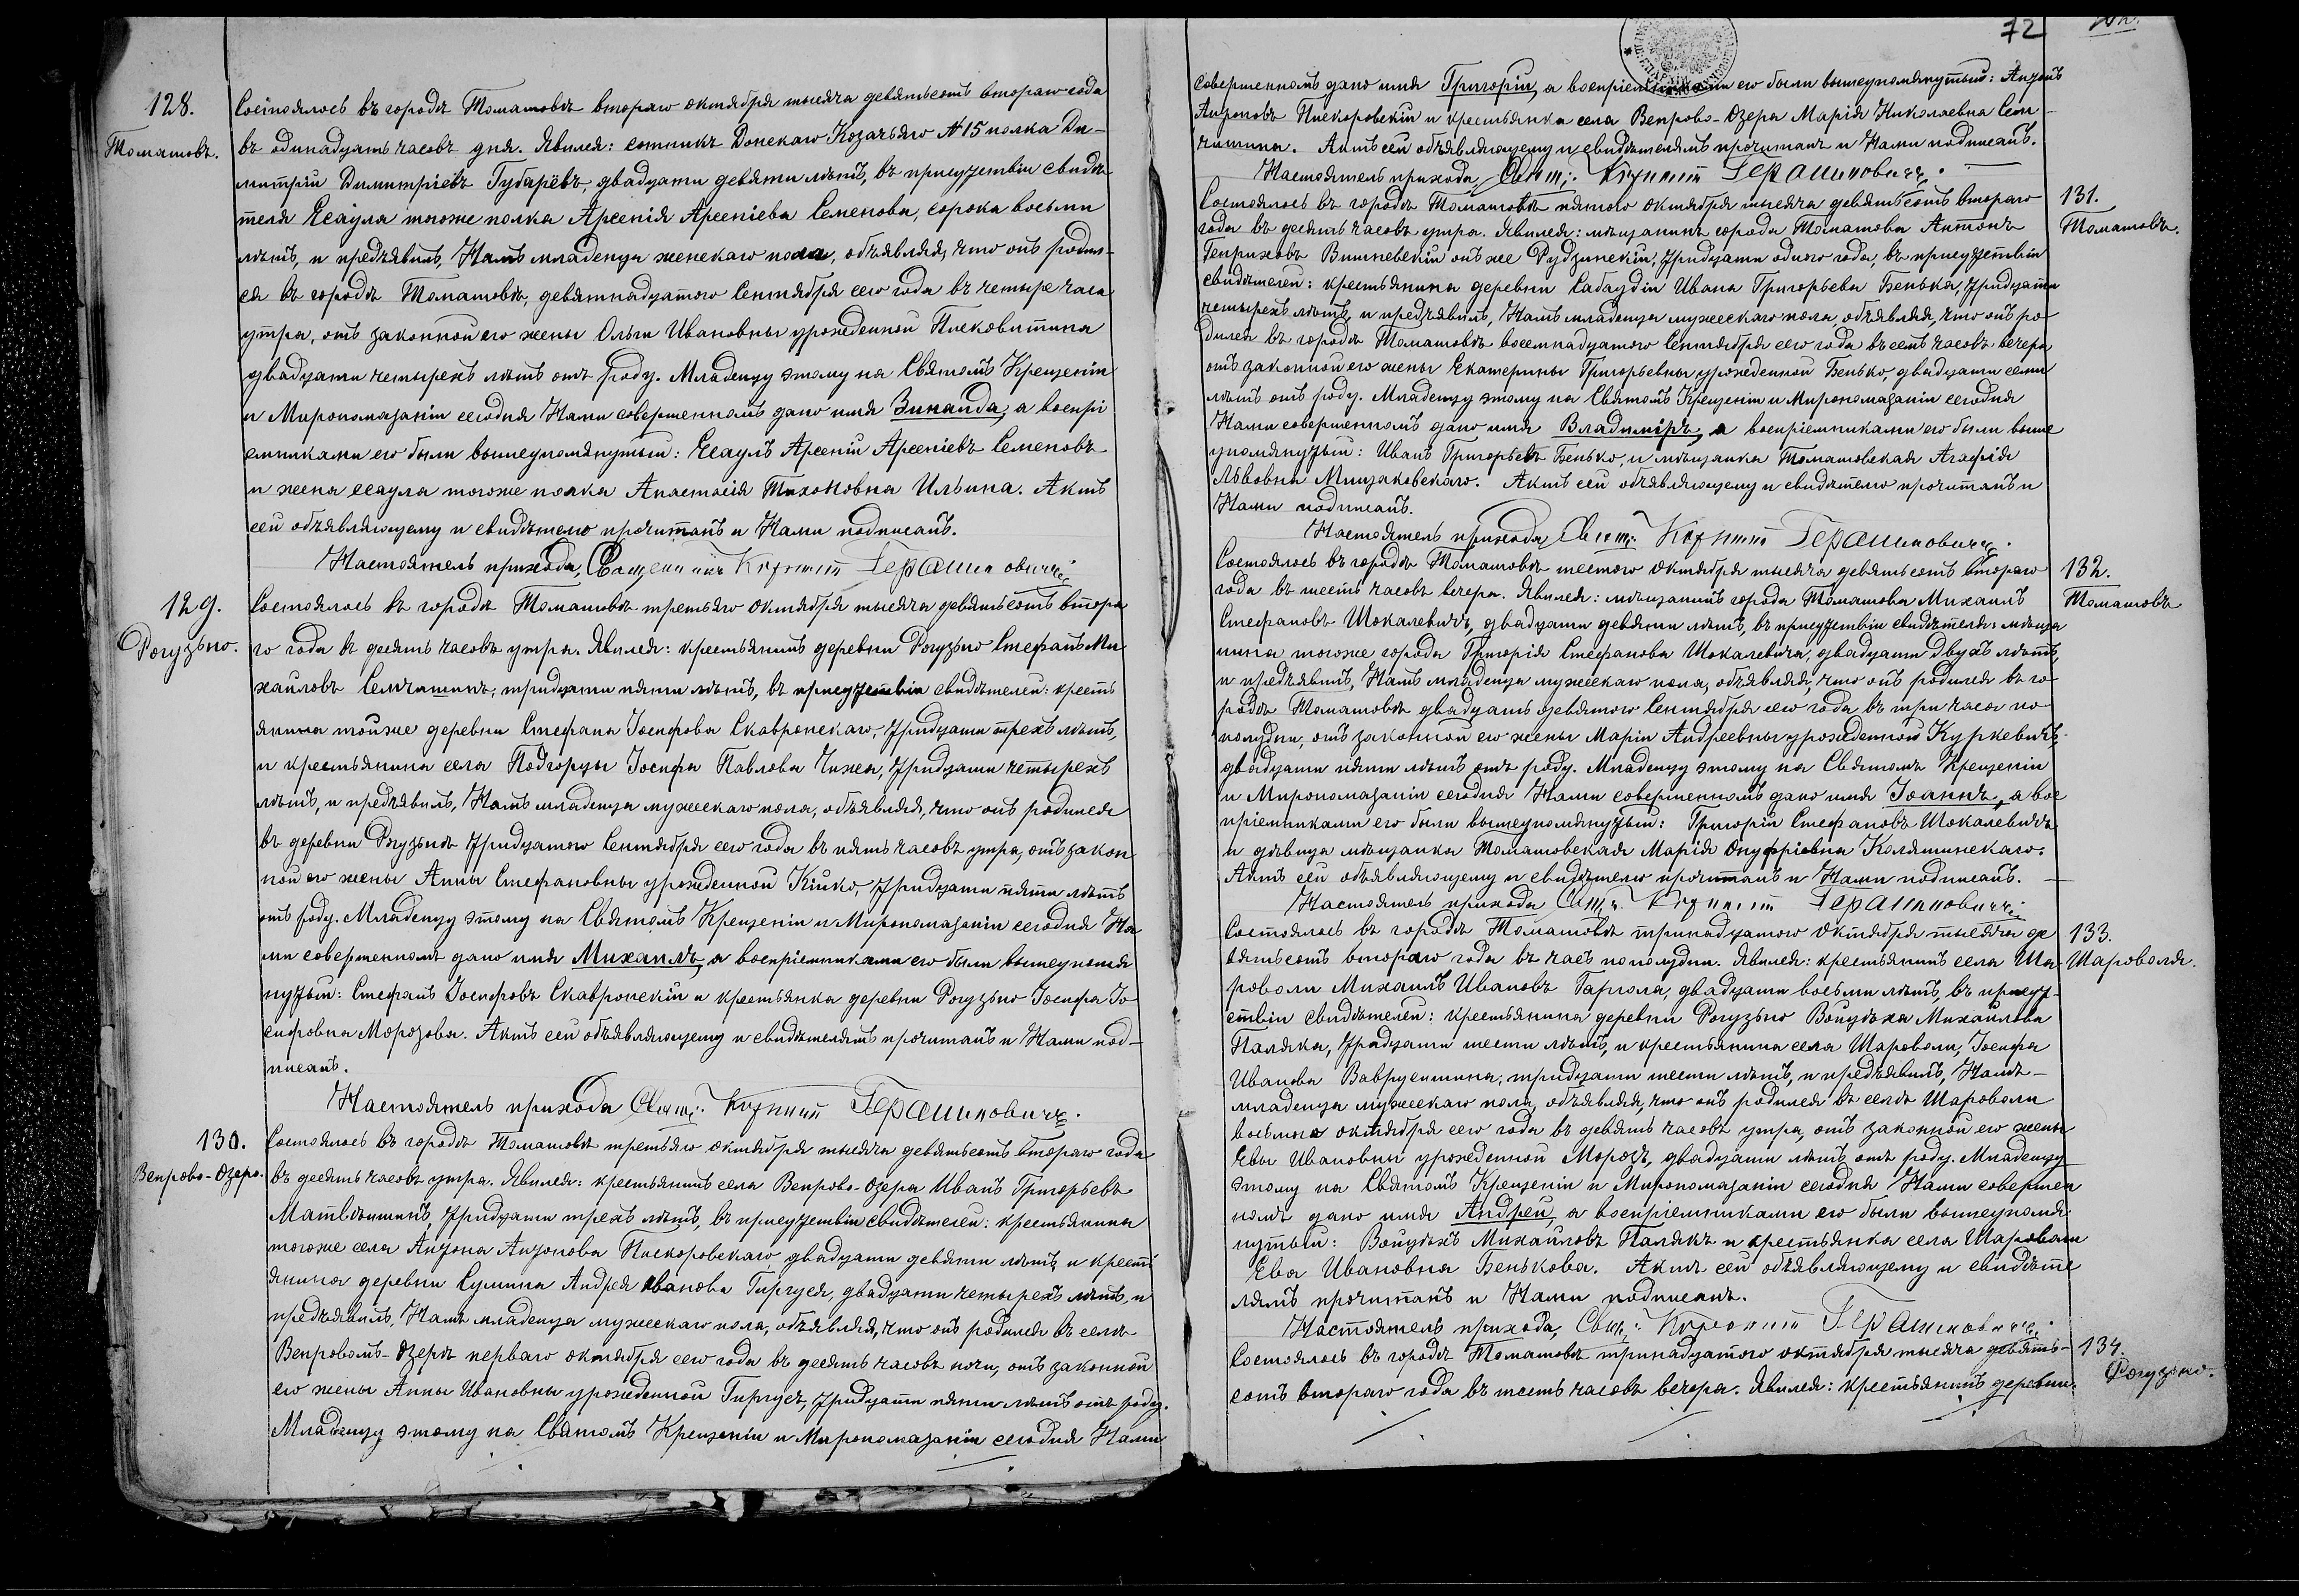 128.
Томашовъ.
Состоялось въ городѣ Томашовѣ втораго октября тысяча девятьсотъ втораго года
въ одинадцать часовъ дня. Явился: сотникъ Донскаго Козачьяго № 15 полка Ди-
митрій Димитріевъ Губарёвъ, двадцати девяти лѣтъ, въ присутствіи свидѣ
теля Есаула тогоже полка Арсенія Арсеніева Семенова, сорока восьми
лѣтъ, и предъявилъ Намъ младенца женскаго пола, объявляя, что онъ родил-
ся въ городѣ Томашовѣ, девятнадцатого Сентября сего года въ четыре часа
утра, отъ законной его жены Ольги Ивановны урожденной Псковитина
двадцати четырехъ лѣтъ отъ роду. Младенцу этому на Святомъ Крещеніи
и Миропомазаніи сегодня Нами совершенномъ дано имя Зинаида, а воспрі
емниками его были вышеупомянутый: Есаулъ Арсеній Арсеніевъ Семеновъ
и жена есаула тогоже полка Анастасія Тихоновна Ильина. Актъ
сей объявляющему и свидѣтелю прочитанъ и Нами подписанъ.
Настоятель прихода, Священникъ Герашиновичъ
129.
Рогузьно.
Состоялось въ городѣ Томашовѣ третьяго октября тысяча девятьсотъ втора
го года въ десять часовъ утра. Явился: крестьянинъ деревни Рогузьно Стефанъ Ми
хаиловъ Семчишинъ, тридцати пяти лѣтъ, въ присутствіи свидѣтелей: кресть
янина тойже деревни Стефана Іосифова Скавронскаго, тридцати трехъ лѣтъ,
и крестьянина села Подгорцы Іосифа Павлова Чижа, тридцати четырехъ
лѣтъ, и предъявилъ Намъ младенца мужескаго пола, объявляя, что онъ родился
въ деревни Рогузьнѣ тридцатого Сентября сего года въ пять часовъ утра, отъ закон
ной его жены Анны Стефановны урожденной Кицко, тридцати пяти лѣтъ
отъ роду. Младенцу этому на Святомъ Крещеніи и Миропомазаніи сегодня На
ми совершенномъ дано имя Михаилъ, а воспріемниками его были вышеупомя
нутый: Стефанъ Іосифовъ Скавронскій и крестьянка деревни Рогузьно Іосифа Іо
сифовна Морозова. Актъ сей объявляющему и свидѣтелямъ прочитанъ и Нами под-
писанъ.
Настоятель прихода Свящ: Герашиновичъ.
130.
Вепрово-Озеро.
Состоялось въ городѣ Томашовѣ третьяго октября тысяча девятьсотъ втораго года
въ десять часовъ утра. Явился: крестьянинъ села Вепрово-Озера Иванъ Григорьевъ
Матвѣишинъ, тридцати трехъ лѣтъ, въ присутствіи свидѣтелей: крестьянина
тогоже села Антона Антонова Пискоровскаго, двадцати девяти лѣтъ, и кресть
янина деревни Сумина Андрея Иванова Гиргуся, двадцати четырехъ лѣтъ, и
предъявилъ, Намъ младенца мужескаго пола, объявляя, что онъ родился въ селѣ
Вепровомъ-Озерѣ перваго октября сего года въ десять часовъ ночи, отъ законной
его жены Анны Ивановны урожденной Гиргусъ, тридцати пяти лѣтъ отъ роду.
Младенцу этому на Святомъ Крещеніи и Миропомазаніи сегодня Нами
72
совершенномъ дано имя Григорій, а воспріемниками его были вышеупомянутый: Антонъ
Антоновъ Пискоровскій и крестьянка села Вепрово-Озера Марія Николаевна Сем-
чишина. Актъ сей объявляющему и свидѣтелямъ прочитанъ и Нами подписанъ.
Настоятель прихода, Свящ: Герашиновичъ.
131.
Томашовъ.
Состоялось въ городѣ Томашовѣ пятого октября тысяча девятьсотъ втораго
года въ десять часовъ утра. Явился: мѣщанинъ города Томашова Антонъ
Генриховъ Вишневскій онъ же Рудзинскій, тридцати одного года, въ присутствіи
свидѣтелей: крестьянина деревни Сабаудіи Ивана Григорьева Бенька, тридцати
четырехъ лѣтъ, и предъявилъ, Намъ младенца мужескаго пола, объявляя, что онъ ро-
дился въ городѣ Томашовѣ восемнадцатого Сентября сего года въ семь часовъ вечера
отъ законной его жены Екатерины Григорьевны урожденной Бенько, двадцати семи
лѣтъ отъ роду. Младенцу этому на Святомъ Крещеніи и Миропомазаніи сегодня
Нами совершенномъ дано имя Владиміръ, а воспріемниками его были выше
упомянутый: Иванъ Григорьевъ Бенько, и мѣщанка Томашовская Агафія
Львовна Мищаковскаго. Актъ сей объявляющему и свидѣтелю прочитанъ и
Нами подписанъ.
Настоятель прихода Свящ: Герашиновичъ.
132.
Томашовъ
Состоялось въ городѣ Томашовѣ шестого октября тысяча девятьсотъ втораго
года въ шесть часовъ вечера. Явился: мѣщанинъ города Томашова Михаилъ
Стефановъ Шокалевичъ, двадцати девяти лѣтъ, въ присутствіи свидѣтеля: мѣща
нина тогоже города Григорія Стефанова Шокалевича, двадцати двухъ лѣтъ,
и предъявилъ, Намъ младенца мужескаго пола, объявляя, что онъ родился въ го-
родѣ Томашовѣ двадцать девятого Сентября сего года въ три часа по-
полудни, отъ законной его жены Маріи Андреевны урожденной Куркевичъ,
двадцати пяти лѣтъ отъ роду. Младенцу этому на Святомъ Крещеніи
и Миропомазаніи сегодня Нами совершенномъ дано имя Іоаннъ, а вос
пріемниками его были вышеупомянутый: Григорій Стефановъ Шокалевичъ
и дѣвица мѣщанка Томашовская Марія Онуфріевна Колятинскаго.
Актъ сей объявляющему и свидѣтелю прочитанъ и Нами подписанъ.
Настоятель прихода Свящ: Герашиновичъ
133.
Шароволя.
Состоялось въ городѣ Томашовѣ тринадцатого октября тысяча де
вятьсотъ втораго года въ часъ пополудни. Явился: крестьянинъ села Ша-
роволи Михаилъ Ивановъ Гаргола, двадцати восьми лѣтъ, въ присут-
ствіи свидѣтелей: крестьянина деревни Рогузьно Войцѣха Михайлова
Паляка, тридцати шести лѣтъ, и крестьянина села Шароволи, Іосифа
Иванова Ваврусишина, тридцати шести лѣтъ, и предъявилъ, Намъ-
младенца мужескаго пола, объявляя, что онъ родился въ селѣ Шароволи
восьмого октября сего года въ девять часовъ утра, отъ законной его жены
Евы Ивановны урожденной Морозъ, двадцати лѣтъ отъ роду. Младенцу
этому на Святомъ Крещеніи и Миропомазаніи сегодня Нами совершен
номъ дано имя Андрей, а воспріемниками его были вышеупомя-
нутый: Войцѣхъ Михайловъ Палякъ и крестьянка села Шароволи
Ева Ивановна Бенькова. Актъ сей объявляющему и свидѣте
лямъ прочитанъ и Нами подписанъ.
Настоятель прихода, Свящ: Герашиновичъ
134.
Рогузьно.
Состоялось въ городѣ Томашовѣ тринадцатого октября тысяча девять-
сотъ втораго года въ шесть часовъ вечера. Явился: крестьянинъ деревни